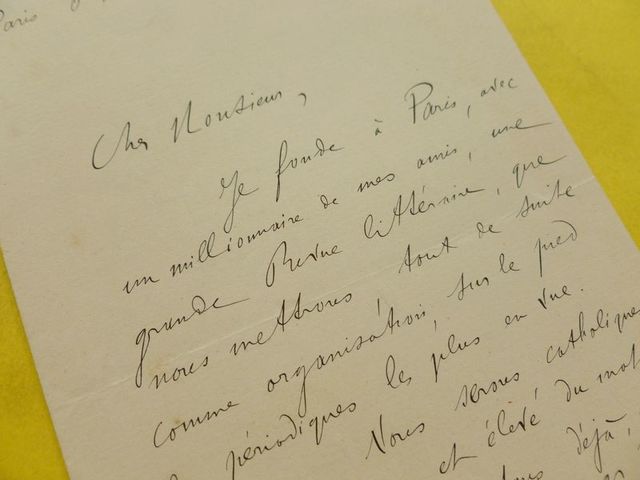 Paris
Cher Monsieur,
Je fonde à Paris, avec
un millionnaire de mes amis, une
grande Revue littéraire, que
nous mettrons, tout de suite
comme organisation, sur le pied
périodiques les plus en vue.
Nous serons catholiques
et élevé du mot
déjà,